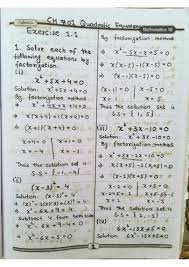 CH #01 Quadratic Equation
Mathematics 10
Exercise 1.1
1. Solve each of the
following equations by
factorization
(i)
x² + 5x + 4 = 0
Solution: x² + 5x + 4 = 0
By factorization method
x(x+1) + 4(x+1) = 0
(x+1)(x+4) = 0
x+1 = 0
x+4 = 0
x = -1
x = -4
Thus the solution set
S.S = {-1, -4}
(ii)
(x-3)² = 4
x² - 6x + 9 = 4
Subtract 4 from both sides
x² - 6x + 5 = 0
By factorization method
x² - 5x - x + 5 = 0
x(x-5) - 1(x-5) = 0
(x-1)(x-5) = 0
x-1 = 0
x-5 = 0
x = 1
x = 5
Thus the solution set
S.S = {1, 5}
(iii)
x² + 3x - 10 = 0
Solution: x² + 3x - 10 = 0
By factorization method
x-2 = 0
x+5 = 0
x = 2
x = -5
Thus the solution set
S.S = {2, -5}
(iv)
6x² - 13x + 5 = 0
Solution: 6x² - 13x + 5 = 0